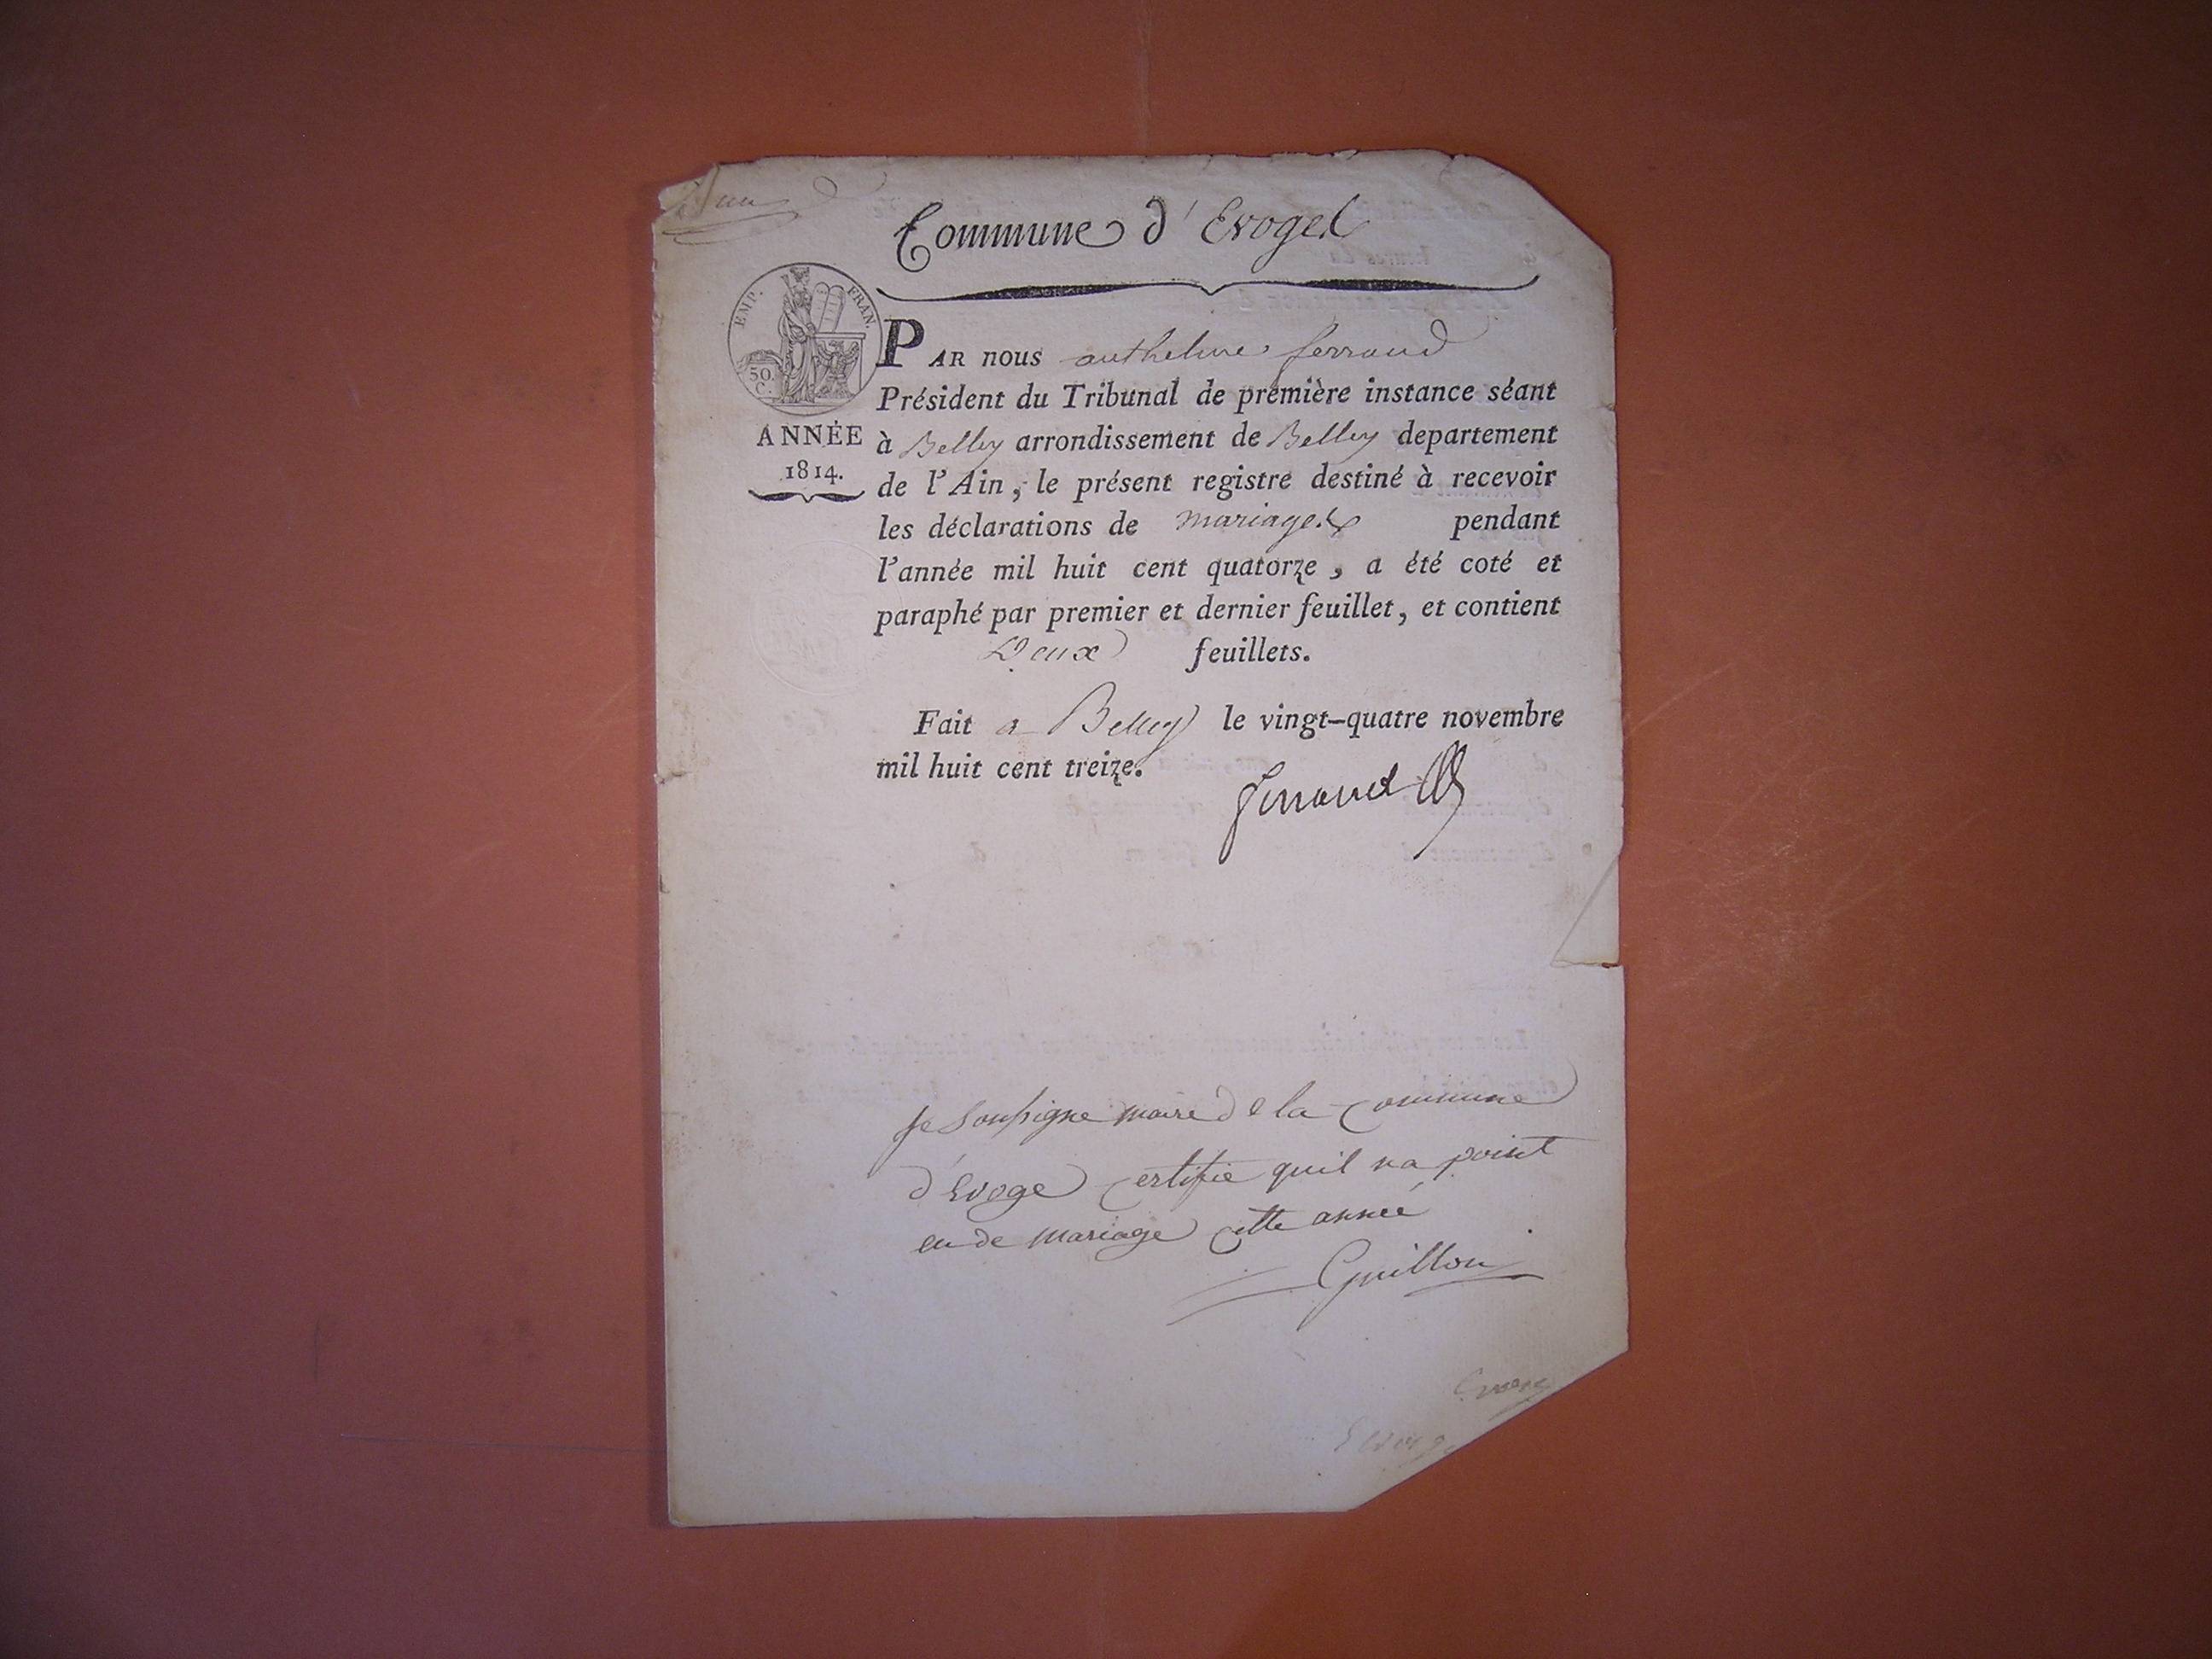 un
Commune d'Evoges
EMP. FRAN.
50.
C.
ANNÉE
1814.
PAR nous anthelme ferrand
Président du Tribunal de première instance séant
à Belley arrondissement de Belley departement
de l'Ain, le présent registre destiné à recevoir
les déclarations de mariages pendant
l'année mil huit cent quatorze, a été coté et
paraphé par premier et dernier feuillet, et contient
Deux feuillets.
Fait a Belley le vingt-quatre novembre
mil huit cent treize.
ferrand
je soussigne maire de la commune
d'Evoge certifie quil na point
eu de mariage cette année
Guillon
Evoge